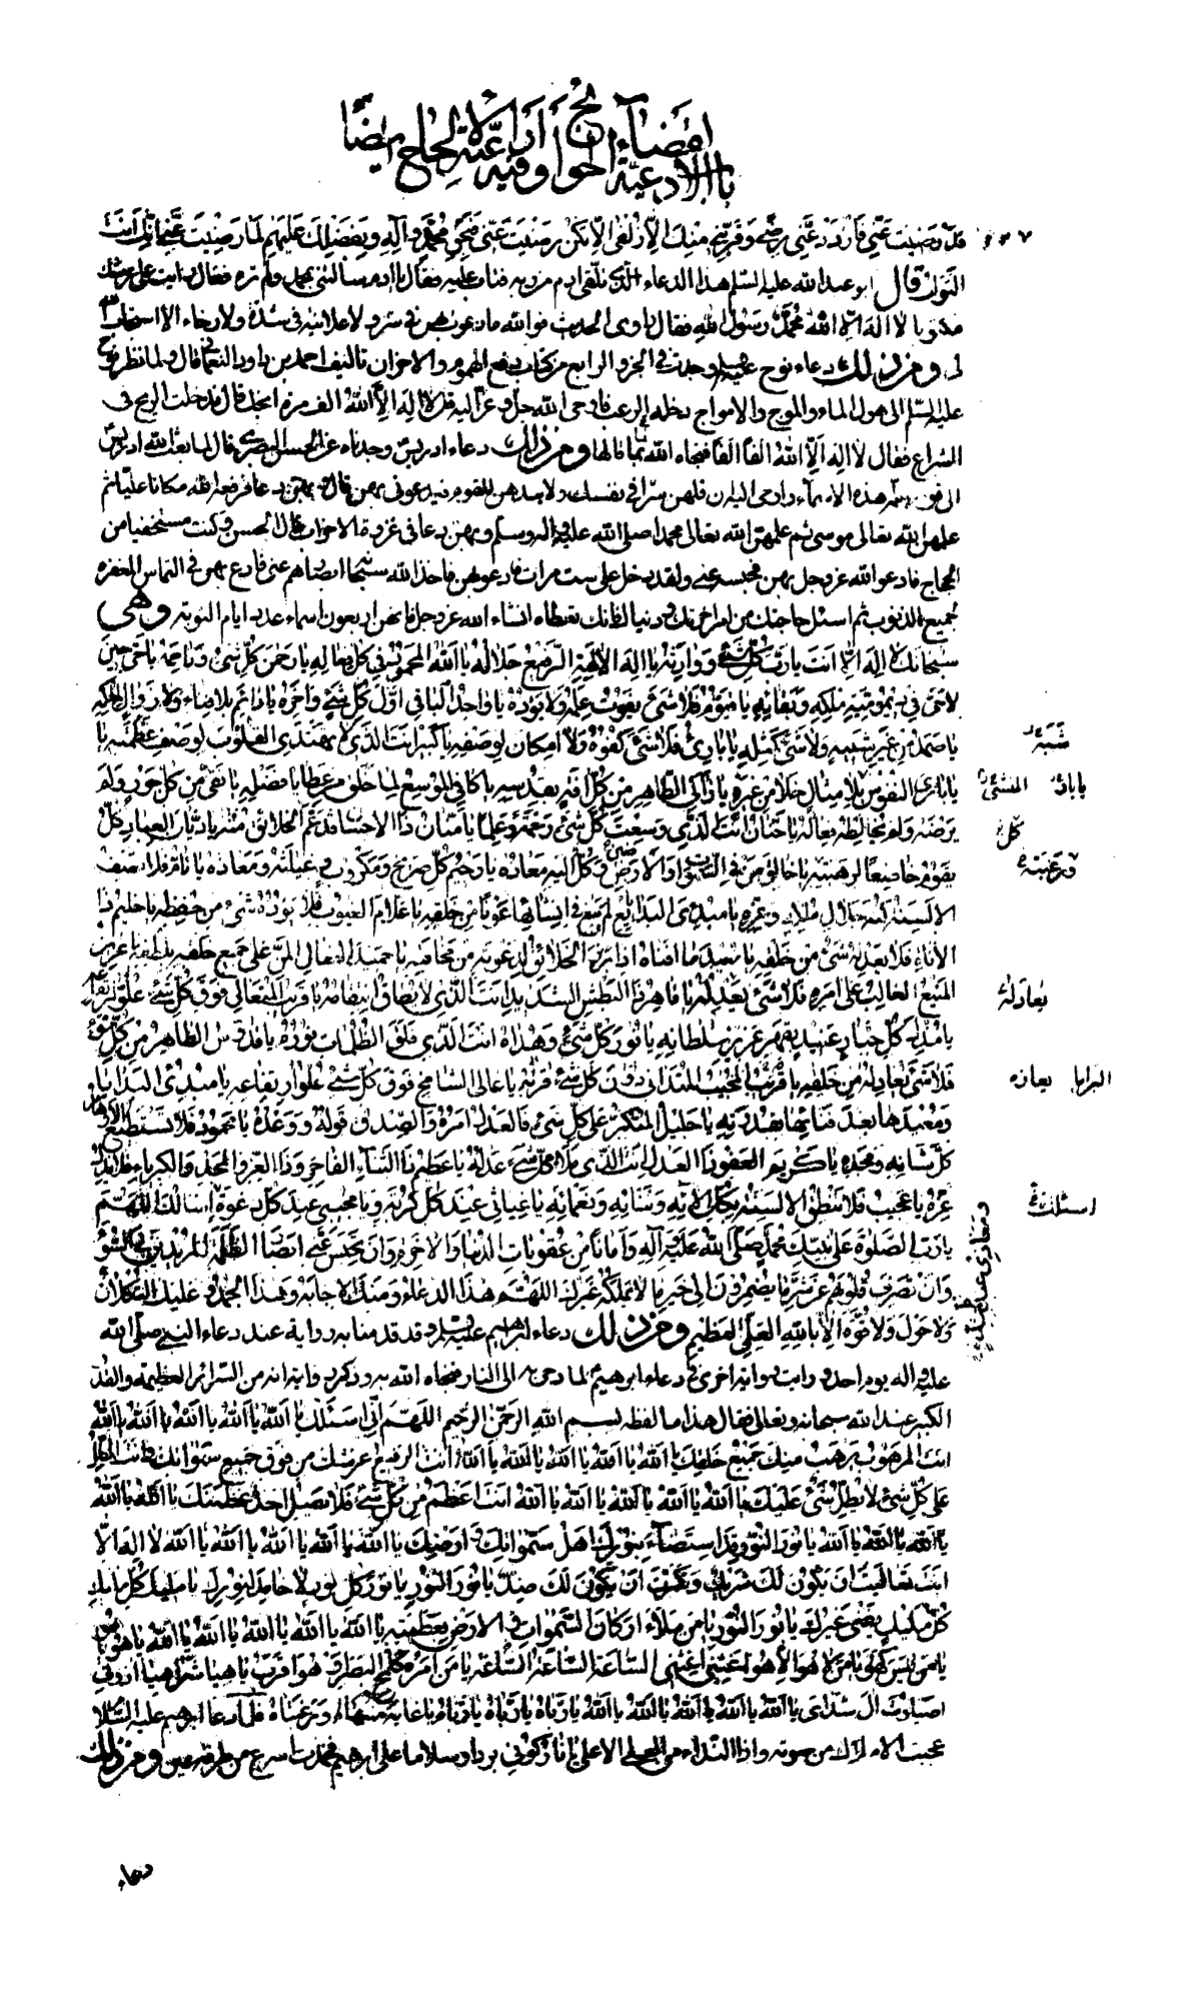 قد رضيت عني فازدد عني رضى وقربني منك الا زلفى الا تكن رضيت عني فبحق محمد وآله وبفضلك عليهم لما رضيت عني انك انت
التواب قال ابو عبد الله عليه السلم هذا الدعاء الذى تلقى ادم من ربه فتاب عليه فقال يا ادم سالتني بمحمد ولم تره فقال رايت على عرشك
مكتوبا لا اله الا الله محمد رسول الله فقال راوى الحديث فوالله ما دعوت بهن في سر ولا علانية في شدة ولا رخاء الا استجاب الله
لى ومن ذلك دعاء نوح عليه السلم وجدت في الجزو الرابع من كتاب دفع الهموم والاحزان تاليف احمد بن داود النعماني قال ولما نظر نوح
عليه السلم الى هول الماء والموج والامواج دخله الرعب فاوحى الله جل وعز اليه قل لا اله الا الله الف مرة انجك قال فدخلت الريح في
الشراع فقال لا اله الا الله الفا الفا فنجاه الله بما قالها ومن ذلك دعاء ادريس وجدناه عن الحسن البصرى قال لما بعث الله ادريس
الى قومه علمه هذه الاسماء واوحى اليه ان قلهن سرا في نفسك ولا تبدهن للقوم فيدعوني بهن قال وبهن دعا فرفعه الله مكانا عليا ثم
علمهن الله تعالى موسى ثم علمهن الله تعالى محمدا صلى الله عليه واله وسلم وبهن دعا في غزوة الاحزاب قال الحسن وكنت مستخفيا من
الحجاج فادعو الله عز وجل بهن فحبسه عني ولقد دخل على ست مرات فادعو بهن فاخذ الله سبحانه ابصارهم عني فادع بهن في التماس المغفرة
لجميع الذنوب ثم اسئل حاجتك من امر اخرتك ودنياك فانك تعطاه انشاء الله عز وجل فانهن اربعون اسماء عدد ايام التوبة وهي
سبحانك لا اله الا انت يا رب كل شيء ووارثه يا اله الالهة الرفيع جلاله يا الله المحمود في كل فعاله يا رحمن كل شيء وراحمه يا حي حين
لا حي في ديمومية ملكه وبقائه يا قيوم فلا شيء يفوت علمه ولا يؤده يا واحد الباقي اول كل شيء واخره يا دائم بلا فناء ولا زوال لملكه
يا صمد من غير شبيه ولا شيء كمثله يا بارئ فلا شيء كفوه ولا امكان لوصفه يا كبير انت الذي لا تهتدي القلوب لوصف عظمته يا
يا بارئ النفوس بلا مثال خلا من غيره يا زاكى الطاهر من كل آفة بقدسه يا كافي الموسع لما خلق من عطايا فضله يا نقى من كل جور ولم
يرضه ولم يخالطه فعاله يا حنان انت الذي وسعت كل شيء رحمة وعلما يا منان ذا الاحسان قد عم الخلائق منه يا ديان العباد كل
يقوم خاضعا لرهبته يا خالق من في السموات والارض وكل اليه معاده يا رحيم كل صريخ ومكروب وغياثه ومعاذه يا تام فلا تصف
الالسنة كنه جلال ملكه وعزه يا مبدى البدائع لم يبغ في انشائها عونا من خلقه يا علام الغيوب فلا يؤده شيء من حفظه يا حليم ذا
الاناة فلا يعدله شيء من خلقه يا معيد ما افناه اذا برز الخلائق لدعوته من مخافته يا حميد الفعال ذا المن على جميع خلقه بلطفه يا عزيز
المنيع الغالب على امره فلا شيء يعدله يا قاهر ذا البطش الشديد انت الذي لا يطاق انتقامه يا قريب المتعالي فوق كل شيء علو ارتفاعه
يا مذل كل جبار عنيد بقهر عزيز سلطانه يا نور كل شيء وهداه انت الذي فلق الظلمات نوره يا قدوس الطاهر من كل سوء
فلا شيء يعادله من خلقه يا قريب المجيب المتداني دون كل شيء قربه يا عالى الشامخ فوق كل شيء علو ارتفاعه يا مبدئ البدايا و
ومعيدها بعد فنائها بقدرته يا جليل المتكبر على كل شيء فالعدل امره والصدق قوله ووعده يا محمود فلا تستطيع الاوهام
كل شانه ومجده يا كريم العفو ذا العدل انت الذي ملا كل شيء عدله يا عظيم ذا الثناء الفاخر وذا العز والمجد والكبرياء فلا يذل
عزه يا عجيب فلا تنطق الالسنة بكل الائه وثنائه ونعمائه يا غياثي عند كل كربة ويا مجيبى عند كل دعوة اسالك اللهم
يا رب الصلوة على نبيك محمد صلى الله عليه وآله وامانا من عقوبات الدنيا والاخرة وان تحبس عني ابصار الظلمة المريدين بي السوء
وان تصرف قلوبهم عن شر ما يضمرون الى خير ما لا يملكه غيرك اللهم هذا الدعاء ومنك الاجابة وهذا الجهد وعليك التكلان
ولا حول ولا قوة الا بالله العلي العظيم ومن ذلك دعاء ابراهيم عليه السلم وقد قدمنا به رواية عند دعاء النبي صلى الله
عليه واله يوم احد ورايت برواية اخرى دعاء ابراهيم لما دحى به الى النار فنجاه الله به وذكر راويه انه من السرائر العظيمة والقدر
الكبير عند الله سبحانه وتعالى فقال هذا ما لفظه بسم الله الرحمن الرحيم اللهم انى اسئلك يا الله يا الله يا الله يا الله يا الله
انت المرهوب يرهب منك جميع خلقك يا الله يا الله يا الله يا الله يا الله انت الرفيع عرشك من فوق جميع سمواتك وانت المظل
على كل شيء لا يظل شيء عليك يا الله يا الله يا الله يا الله يا الله انت اعظم من كل شيء فلا يصل احد عظمتك يا الله يا الله
يا الله يا الله يا الله يا نور النور قد استضاء بنورك اهل سمواتك وارضك يا الله يا الله يا الله يا الله يا الله لا اله الا
انت تعاليت ان يكون لك شريك وتكبرت ان يكون لك ضد يا نور النور يا نور كل نور لا خامد لنورك يا مليك كل مليك
كل مليك يفنى غيرك يا نور النور يا من ملاء اركان السموات والارض بعظمته يا الله يا الله يا الله يا الله يا الله يا هو
يا من ليس كهو يا من لا هو الا هو اغثني اغثني الساعة الساعة الساعة يا من امره كلمح البصر او هو اقرب يا هيا شراهيا ادوني
اصباوث ال شداى يا الله يا الله يا الله يا الله يا الله يا رباه يا رباه يا رباه يا غاية منتهاه ورغبتاه قلما دعا ابرهيم عليه السلا
عجبت الاملاك من صوته واذا النداء من العلى الاعلى يا نار كوني بردا وسلاما على ابرهيم فخمدت اسرع من طرفة عين ومن ذلك
شبه
يا باري المنشئ
كل
ورغبته
يعادله
البرايا يعازه
اسئلك
دعاء